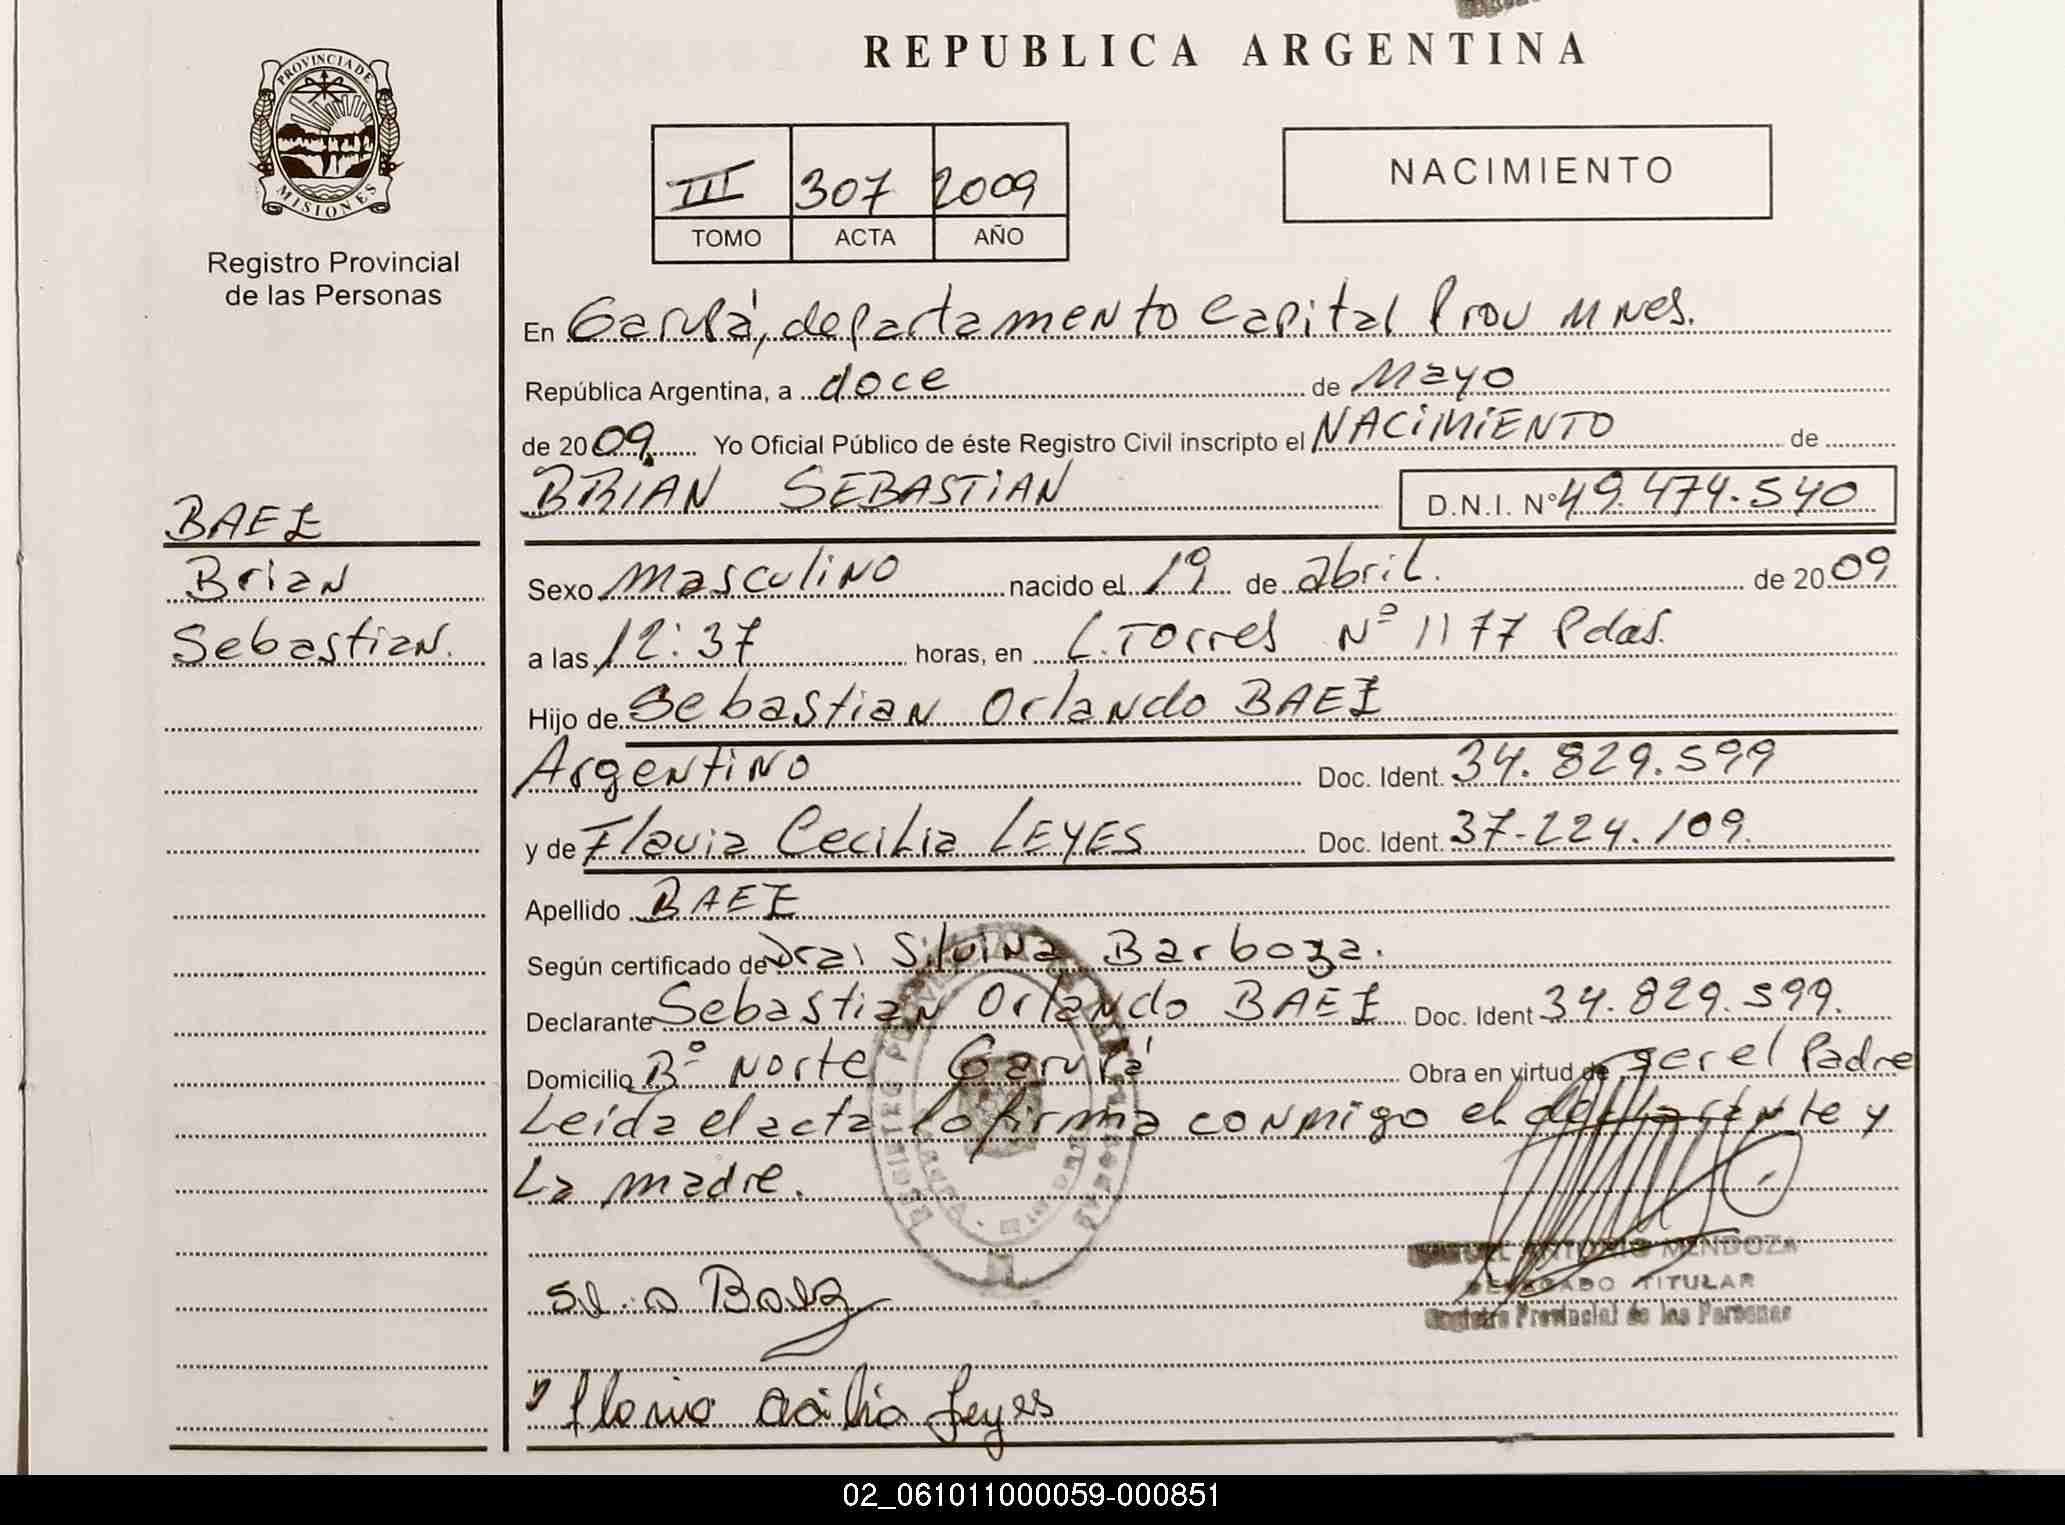 REPUBLICA ARGENTINA
PROVINCIA DE
MISIONES
Registro Provincial
de las Personas
III 307 2009
TOMO ACTA AÑO
NACIMIENTO
En Garupá, departamento Capital Prov Mnes.
República Argentina, a doce de Mayo
de 2009. Yo Oficial Público de éste Registro Civil inscripto el NACIMIENTO de
BRIAN SEBASTIAN D.N.I. Nº 49.474.540
BAEZ
Brian
Sebastian.
Sexo masculino nacido el 19 de abril. de 2009
a las 12:37 horas, en L. Torres Nº 1177 Pdas.
Hijo de Sebastian Orlando BAEZ
Argentino Doc. Ident. 34.829.599
y de Flavia Cecilia LEYES Doc. Ident. 37-224.109.
Apellido BAEZ
Según certificado de Dra. Silvina Barboza.
Declarante Sebastian Orlando BAEZ Doc. Ident 34.829.599.
Domicilio Bº Norte Garupá Obra en virtud de ser el Padre
Leida el acta lo firma conmigo el declarante y
La madre.
ANTONIO MENDOZA
DELEGADO TITULAR
Registro Provincial de las Personas
Baez
Flavia Cecilia Leyes
02_061011000059-000851